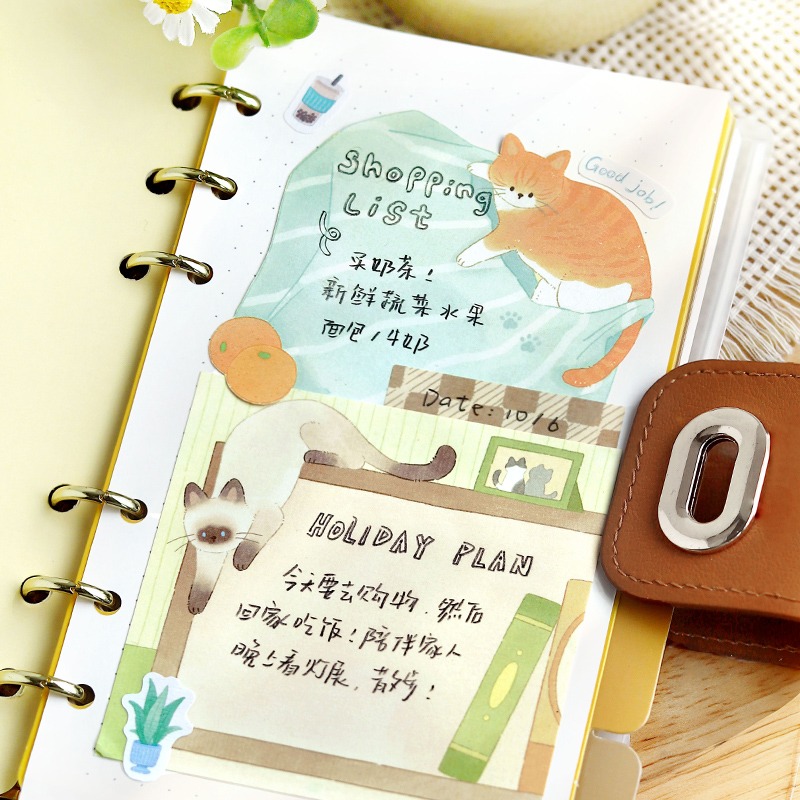 Shopping
List
Good job!
采奶茶！
新鲜蔬菜水果
面包/牛奶
Date: 10/6
HOLIDAY PLAN
今天要去购物，然后
回家吃饭！陪伴家人
晚上看灯展，散步！